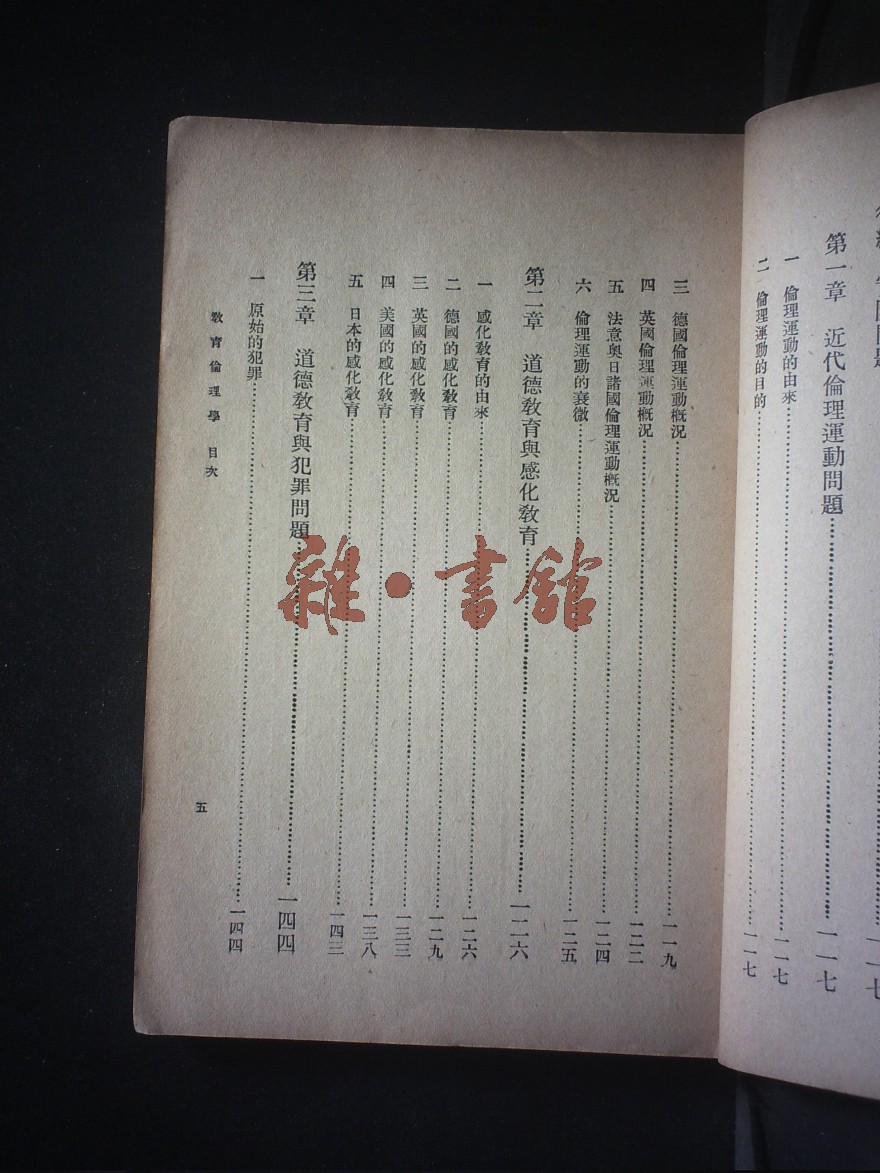 第一章　近代倫理運動問題……一一七
一　倫理運動的由來……一一七
二　倫理運動的目的……一一七
三　德國倫理運動概況……一一九
四　英國倫理運動概況……一二二
五　法意奥日諸國倫理運動概況……一二四
六　倫理運動的衰微……一二五
第二章　道德教育與感化教育……一二六
一　感化教育的由來……一二六
二　德國的感化教育……一二九
三　英國的感化教育……一三三
四　美國的感化教育……一三八
五　日本的感化教育……一四三
第三章　道德教育與犯罪問題……一四四
一　原始的犯罪……一四四
教育倫理學　目次
五
雜·書館